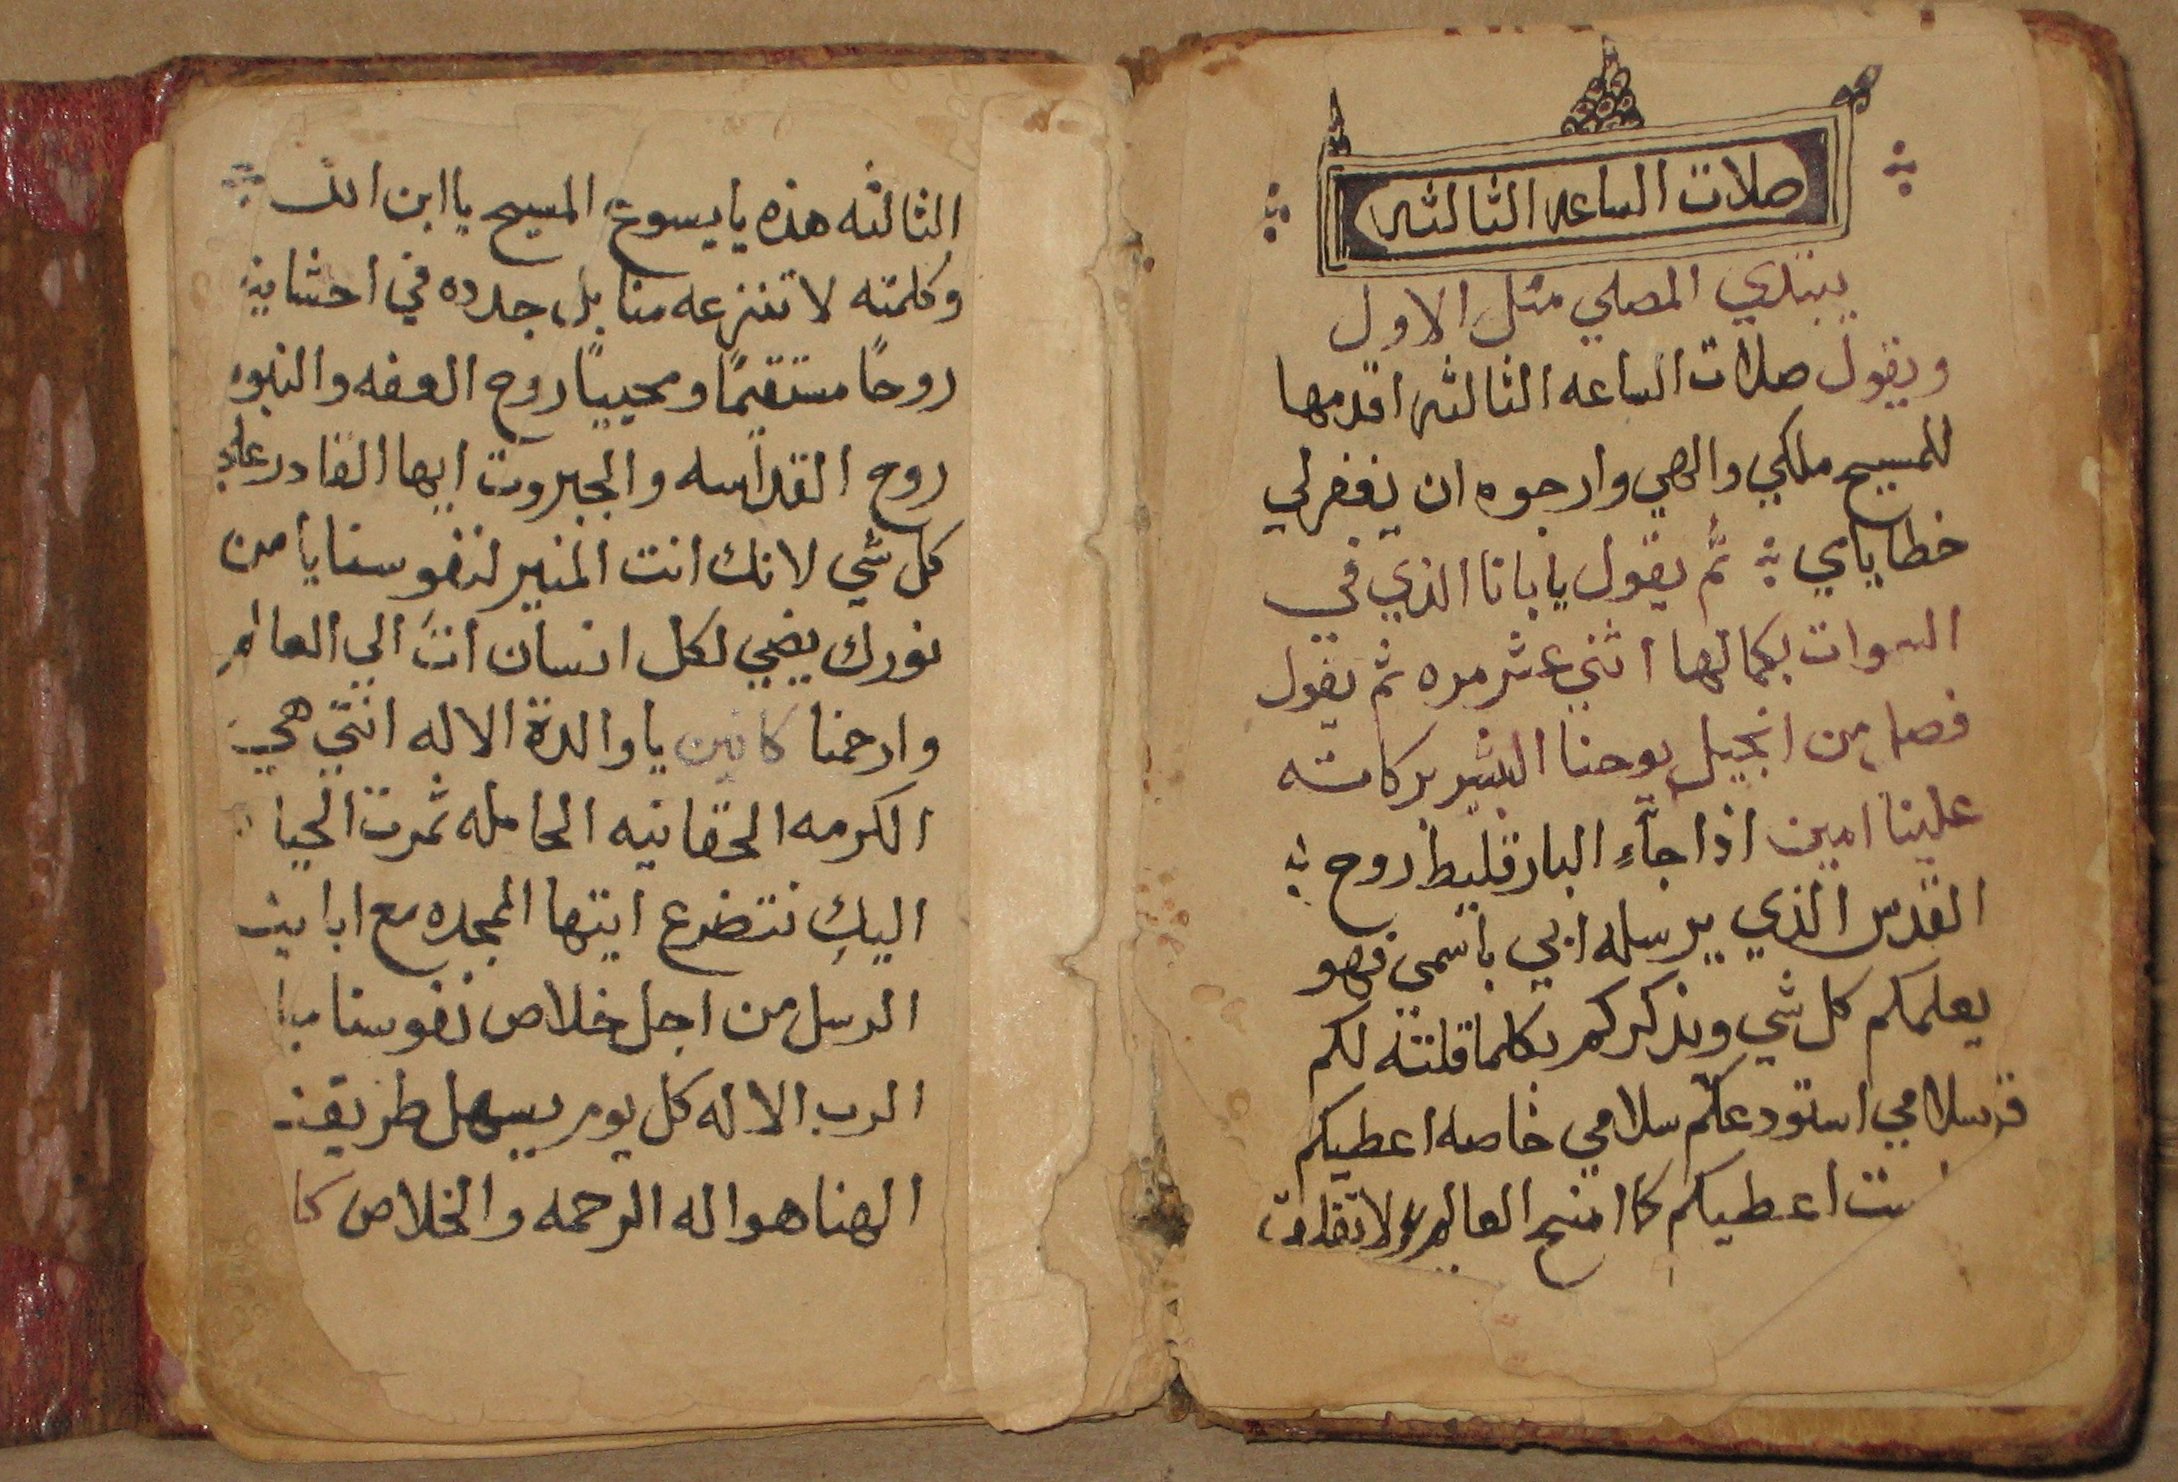 صلات الساعه الثالثه
يبتدي المصلي مثل الاول
ويقول صلات الساعه الثالثه اقدمها
للمسيح ملكي والهي وارجوه ان يغفر لي
خطاياي ثم يقول يابانا الذي في
السموات بكمالها اثني عشر مره ثم يقول
فصل من انجيل يوحنا البشير بركاته
علينا امين اذا جآء البارقليط روح
القدس الذي يرسله ابي باسمي فهو
يعلمكم كل شي ويذكركم بكلما قلته لكم
سلامي استودعكم سلامي خاصه اعطيكم
ست اعطيكم كما امنح العالم ولا تقلق
الثالثه هذه يا يسوع المسيح يا ابن الله
وكلمته لا تنزعه منا بل جدده في احشاينا
روحًا مستقيمًا ومحييًا روح العفه والنبوه
روح القداسه والجبروت ايها القادر علي
كل شي لانك انت المنير لنفوسنا يا من
نورك يضيي لكل انسان اتَ الي العالم
وارحمنا كانين يا والدة الاله انتي هي
الكرمه الحقانيه الحامله ثمرت الحيا
اليكِ نتضرع ايتها الممجده مع ابايت
الرسل من اجل خلاص نفوسنا مبا
الرب الاله كل يوم يسهل طريقنـ
الهنا هو اله الرحمه والخلاص كا